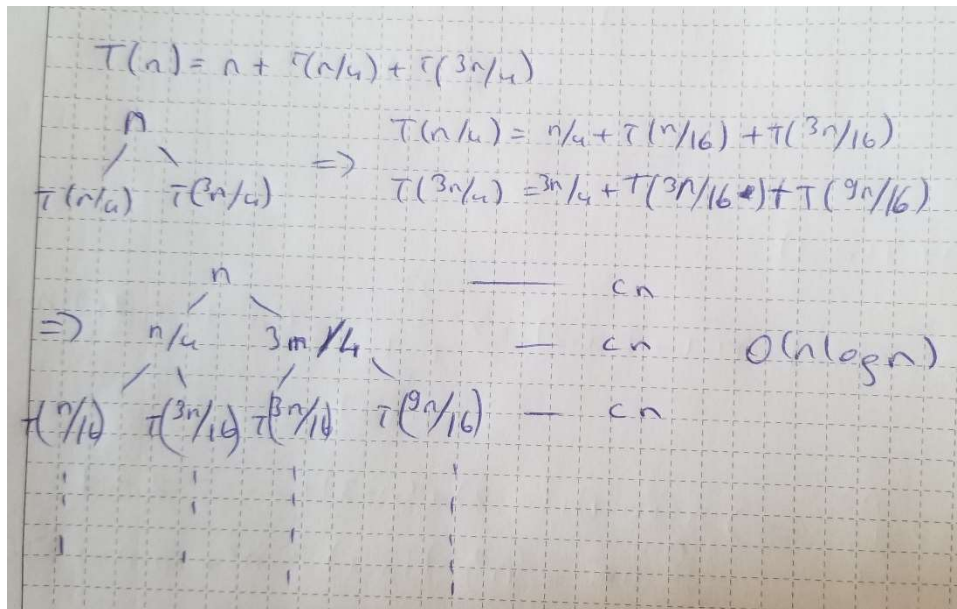 T(n) = n + T(n/4) + T(3n/4)
n
T(n/4) T(3n/4)
=>
T(n/4) = n/4 + T(n/16) + T(3n/16)
T(3n/4) = 3n/4 + T(3n/16) + T(9n/16)
n — cn
=> n/4 3n/4 — cn O(nlogn)
T(n/16) T(3n/16) T(3n/16) T(9n/16) — cn